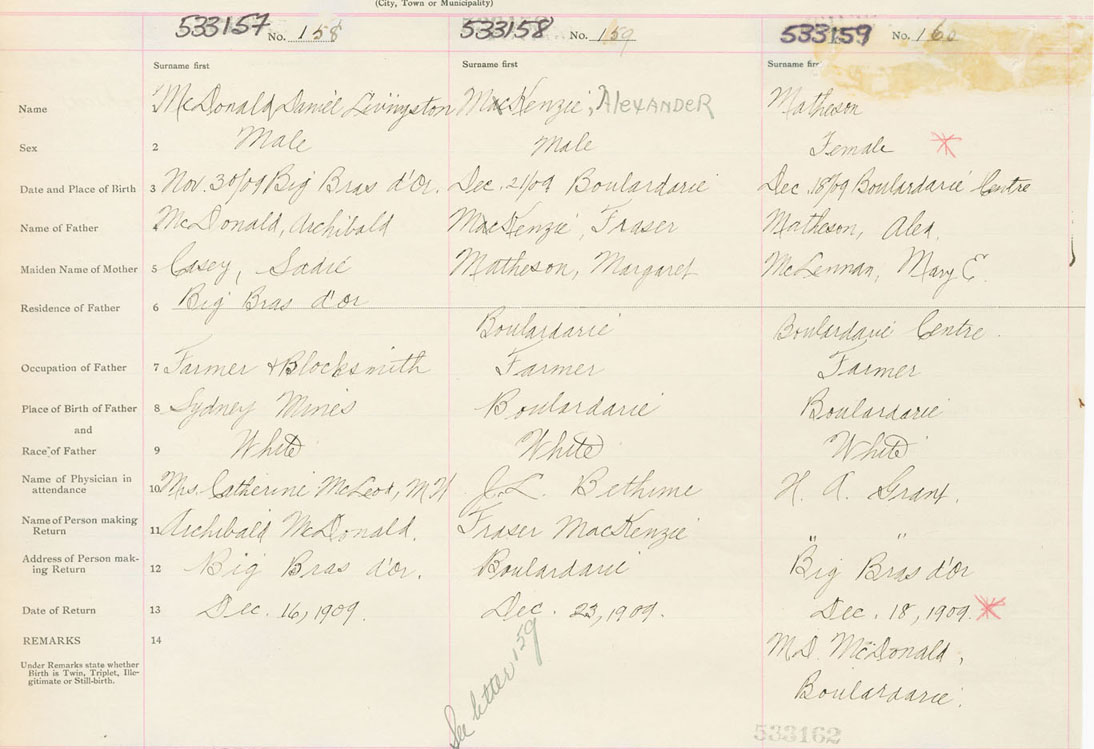 (City, Town or Municipality)
533157 No. 158 533158 No. 159 533159 No. 160
Surname first Surname first Surname fir
Name McDonald, Daniel Livingston MacKenzie, ALEXANDER Matheson
Sex 2 Male Male Female
Date and Place of Birth 3 Nov. 30/09 Big Bras d'Or. Dec. 21/09 Boulardarie Dec. 18/09 Boulardarie Centre
Name of Father 4 McDonald, Archibald MacKenzie, Fraser Matheson, Alex.
Maiden Name of Mother 5 Casey, Sadie Matheson, Margaret McLennan, Mary E.
Residence of Father 6 Big Bras d'Or Boulardarie Boulardarie Centre.
Occupation of Father 7 Farmer & Blocksmith Farmer Farmer
Place of Birth of Father 8 Sydney Mines Boulardarie Boulardarie
and
Race of Father 9 White White White
Name of Physician in
attendance 10 Mrs. Catherine McLeod, M W J. L. Bethune H. A. Grant.
Name of Person making
Return 11 Archibald McDonald. Fraser MacKenzie " "
Address of Person mak-
ing Return 12 Big Bras d'Or. Boulardarie Big Bras d'Or
Date of Return 13 Dec. 16, 1909. Dec. 23, 1909. Dec. 18, 1909.
REMARKS 14 M.D. McDonald,
Under Remarks state whether
Birth is Twin, Triplet, Ille-
gitimate or Still-birth.
Boulardarie.
See letter 159
533162